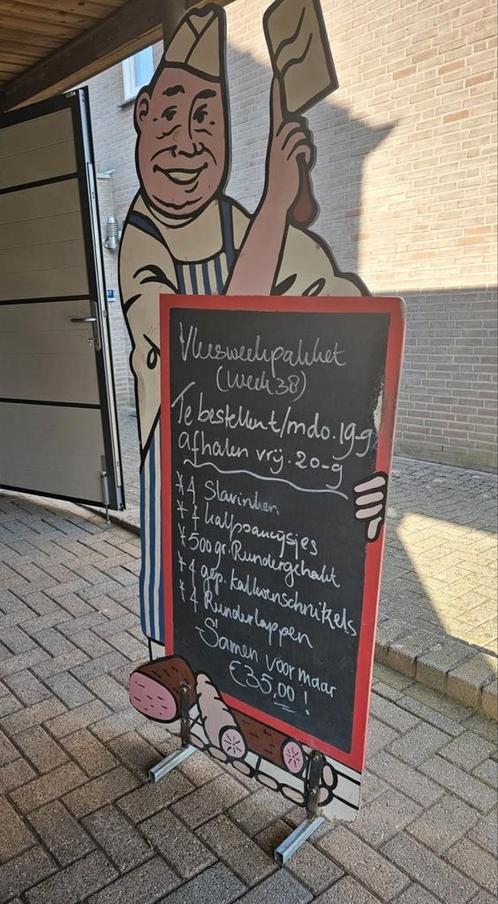 Vleesweekpakket
(week 38)
Te bestellen t/m do. 19-9
afhalen vrij. 20-9
* 4 Slavinken
* 4 kalfsaucijsjes
* 500 gr. Rundergehakt
* 4 gep. kalkoenschnitzels
* 4 Runderlappen
Samen voor maar
€35,00!